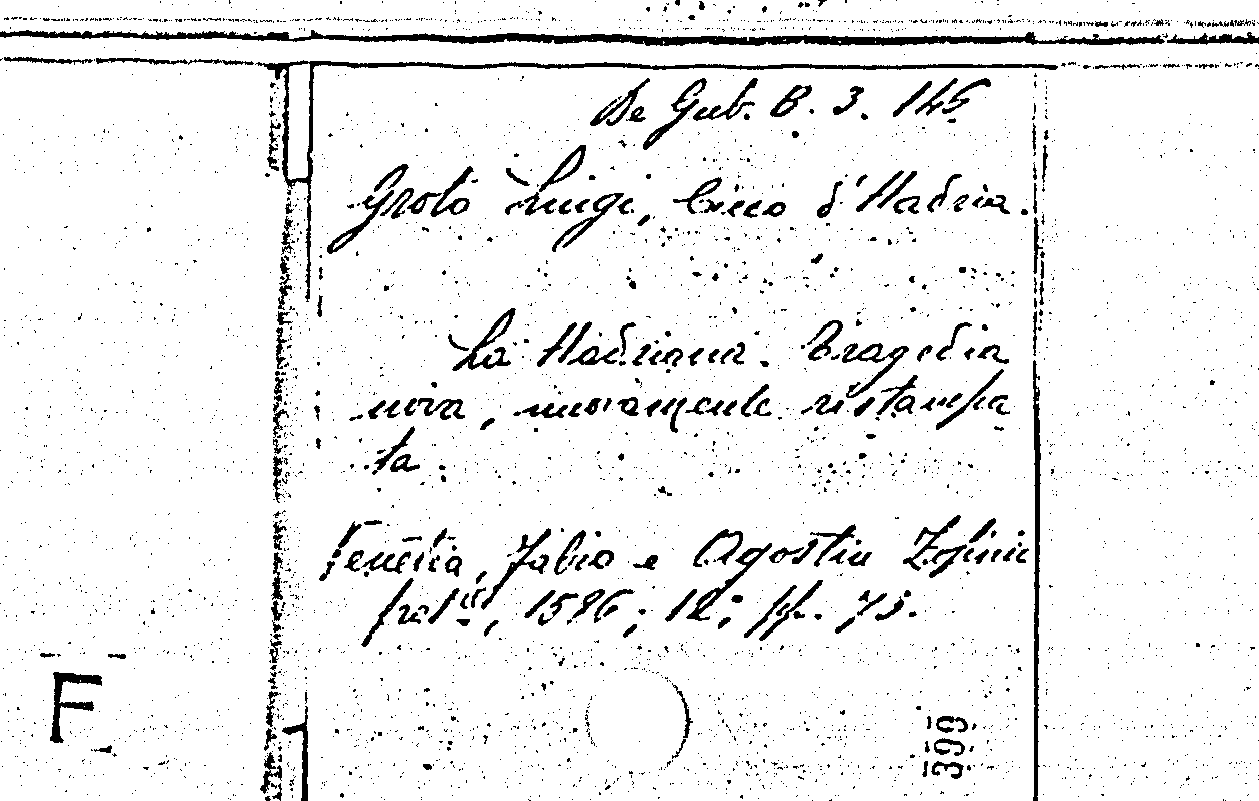 De Gub. B. 3. 145
Groto Luigi, Cieco d'Hadria.
La Hadriana. Tragedia
nova, nuovamente ristampa
ta.
Venetia, Fabio e Agostin Zopini
frat<sup>lli</sup>, 1586; 12°; pp. 75.
F
399